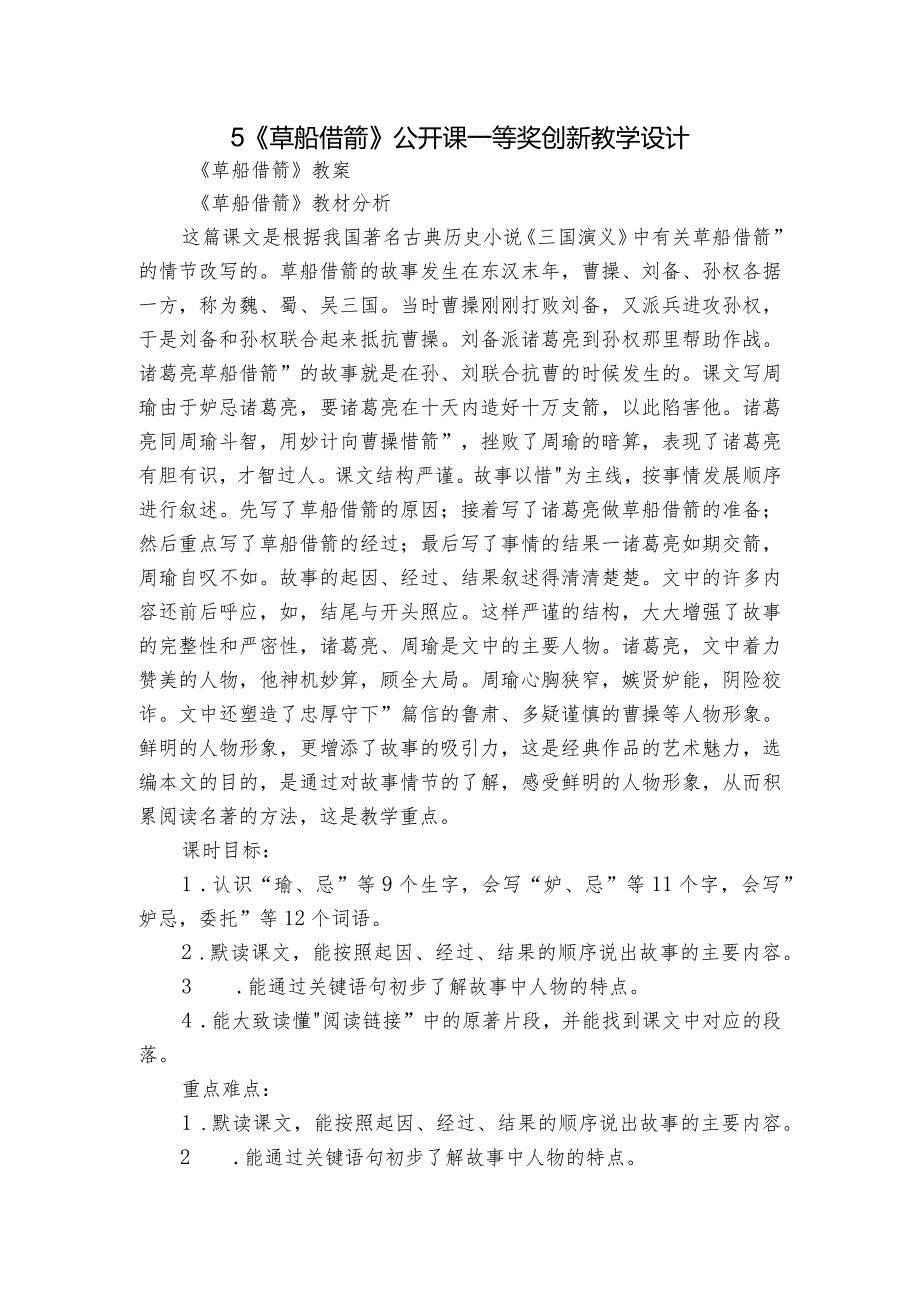 5《草船借箭》公开课一等奖创新教学设计
《草船借箭》教案
《草船借箭》教材分析
这篇课文是根据我国著名古典历史小说《三国演义》中有关草船借箭”
的情节改写的。草船借箭的故事发生在东汉末年，曹操、刘备、孙权各据
一方，称为魏、蜀、吴三国。当时曹操刚刚打败刘备，又派兵进攻孙权，
于是刘备和孙权联合起来抵抗曹操。刘备派诸葛亮到孙权那里帮助作战。
诸葛亮草船借箭”的故事就是在孙、刘联合抗曹的时候发生的。课文写周
瑜由于妒忌诸葛亮，要诸葛亮在十天内造好十万支箭，以此陷害他。诸葛
亮同周瑜斗智，用妙计向曹操惜箭”，挫败了周瑜的暗算，表现了诸葛亮
有胆有识，才智过人。课文结构严谨。故事以惜"为主线，按事情发展顺序
进行叙述。先写了草船借箭的原因；接着写了诸葛亮做草船借箭的准备；
然后重点写了草船借箭的经过；最后写了事情的结果一诸葛亮如期交箭，
周瑜自叹不如。故事的起因、经过、结果叙述得清清楚楚。文中的许多内
容还前后呼应，如，结尾与开头照应。这样严谨的结构，大大增强了故事
的完整性和严密性，诸葛亮、周瑜是文中的主要人物。诸葛亮，文中着力
赞美的人物，他神机妙算，顾全大局。周瑜心胸狭窄，嫉贤妒能，阴险狡
诈。文中还塑造了忠厚守下”篇信的鲁肃、多疑谨慎的曹操等人物形象。
鲜明的人物形象，更增添了故事的吸引力，这是经典作品的艺术魅力，选
编本文的目的，是通过对故事情节的了解，感受鲜明的人物形象，从而积
累阅读名著的方法，这是教学重点。
课时目标：
1.认识“瑜、忌”等9个生字，会写“妒、忌”等11个字，会写”
妒忌，委托”等12个词语。
2.默读课文，能按照起因、经过、结果的顺序说出故事的主要内容。
3 .能通过关键语句初步了解故事中人物的特点。
4.能大致读懂"阅读链接”中的原著片段，并能找到课文中对应的段
落。
重点难点：
1.默读课文，能按照起因、经过、结果的顺序说出故事的主要内容。
2 .能通过关键语句初步了解故事中人物的特点。